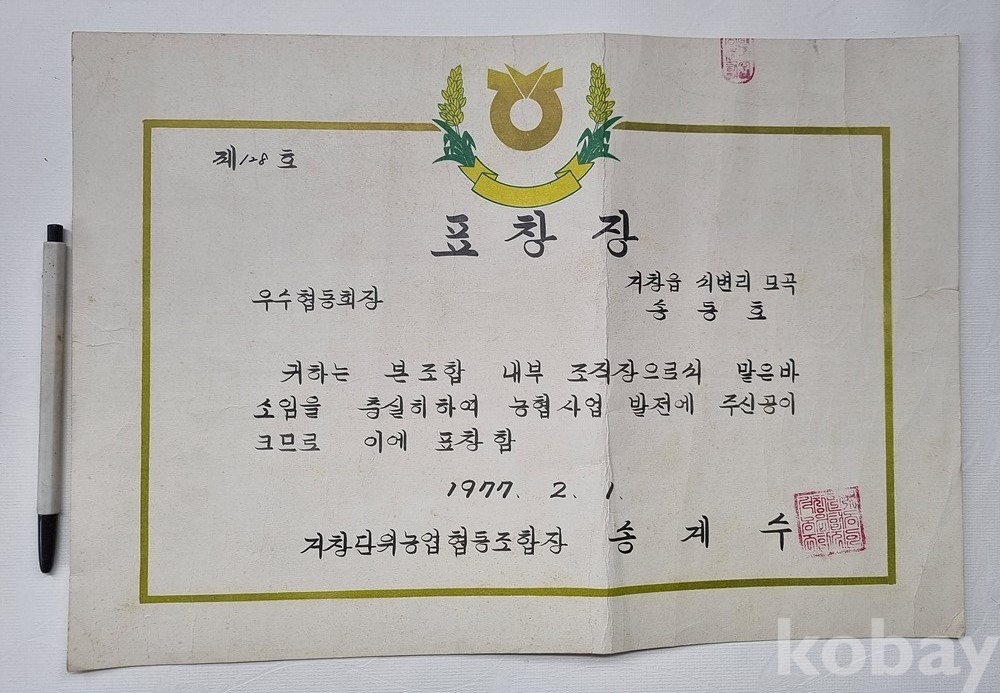 제128호
표창장
거창읍 식변리 모곡
우수협동회장
송동호
귀하는 본조합 내부 조직장으로서 맡은바
소임을 충실히하여 농협사업 발전에 주신공이
크므로 이에 표창함
1977. 2. 1.
거창단위농업협동조합장 송계수
kobay